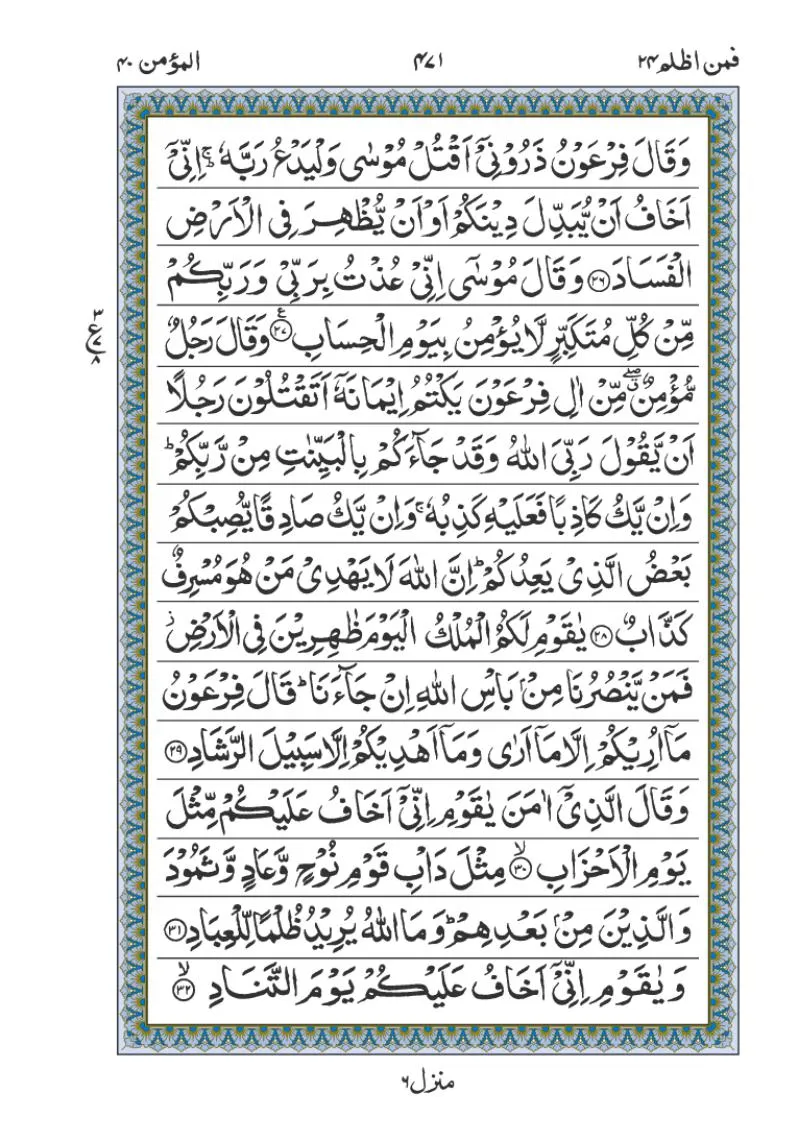 فمن اظلم ۲۴ ۴۷۱ المؤمن ۴۰
وَقَالَ فِرْعَوْنُ ذَرُوْنِیْۤ اَقْتُلْ مُوْسٰى وَلْیَدْعُ رَبَّهٗ ۚ اِنِّیْۤ
اَخَافُ اَنْ یُّبَدِّلَ دِیْنَكُمْ اَوْ اَنْ یُّظْهِرَ فِی الْاَرْضِ
الْفَسَادَ ۲۶ وَقَالَ مُوْسٰۤى اِنِّیْ عُذْتُ بِرَبِّیْ وَرَبِّكُمْ
مِّنْ كُلِّ مُتَكَبِّرٍ لَّا یُؤْمِنُ بِیَوْمِ الْحِسَابِ ۲۷ ع وَقَالَ رَجُلٌ
۳ ع ۷ ۸
مُّؤْمِنٌ ۖۗ مِّنْ اٰلِ فِرْعَوْنَ یَكْتُمُ اِیْمَانَهٗۤ اَتَقْتُلُوْنَ رَجُلًا
اَنْ یَّقُوْلَ رَبِّیَ اللّٰهُ وَقَدْ جَآءَكُمْ بِالْبَیِّنٰتِ مِنْ رَّبِّكُمْ ؕ
وَاِنْ یَّكُ كَاذِبًا فَعَلَیْهِ كَذِبُهٗ ۚ وَاِنْ یَّكُ صَادِقًا یُّصِبْكُمْ
بَعْضُ الَّذِیْ یَعِدُكُمْ ؕ اِنَّ اللّٰهَ لَا یَهْدِیْ مَنْ هُوَ مُسْرِفٌ
كَذَّابٌ ۲۸ یٰقَوْمِ لَكُمُ الْمُلْكُ الْیَوْمَ ظٰهِرِیْنَ فِی الْاَرْضِ ؗ
فَمَنْ یَّنْصُرُنَا مِنْۢ بَاْسِ اللّٰهِ اِنْ جَآءَنَا ؕ قَالَ فِرْعَوْنُ
مَاۤ اُرِیْكُمْ اِلَّا مَاۤ اَرٰى وَمَاۤ اَهْدِیْكُمْ اِلَّا سَبِیْلَ الرَّشَادِ ۲۹
وَقَالَ الَّذِیْۤ اٰمَنَ یٰقَوْمِ اِنِّیْۤ اَخَافُ عَلَیْكُمْ مِّثْلَ
یَوْمِ الْاَحْزَابِ ۳۰ ۙ مِثْلَ دَاْبِ قَوْمِ نُوْحٍ وَّعَادٍ وَّثَمُوْدَ
وَالَّذِیْنَ مِنْۢ بَعْدِهِمْ ؕ وَمَا اللّٰهُ یُرِیْدُ ظُلْمًا لِّلْعِبَادِ ۳۱
وَیٰقَوْمِ اِنِّیْۤ اَخَافُ عَلَیْكُمْ یَوْمَ التَّنَادِ ۳۲ ۙ
منزل ۶